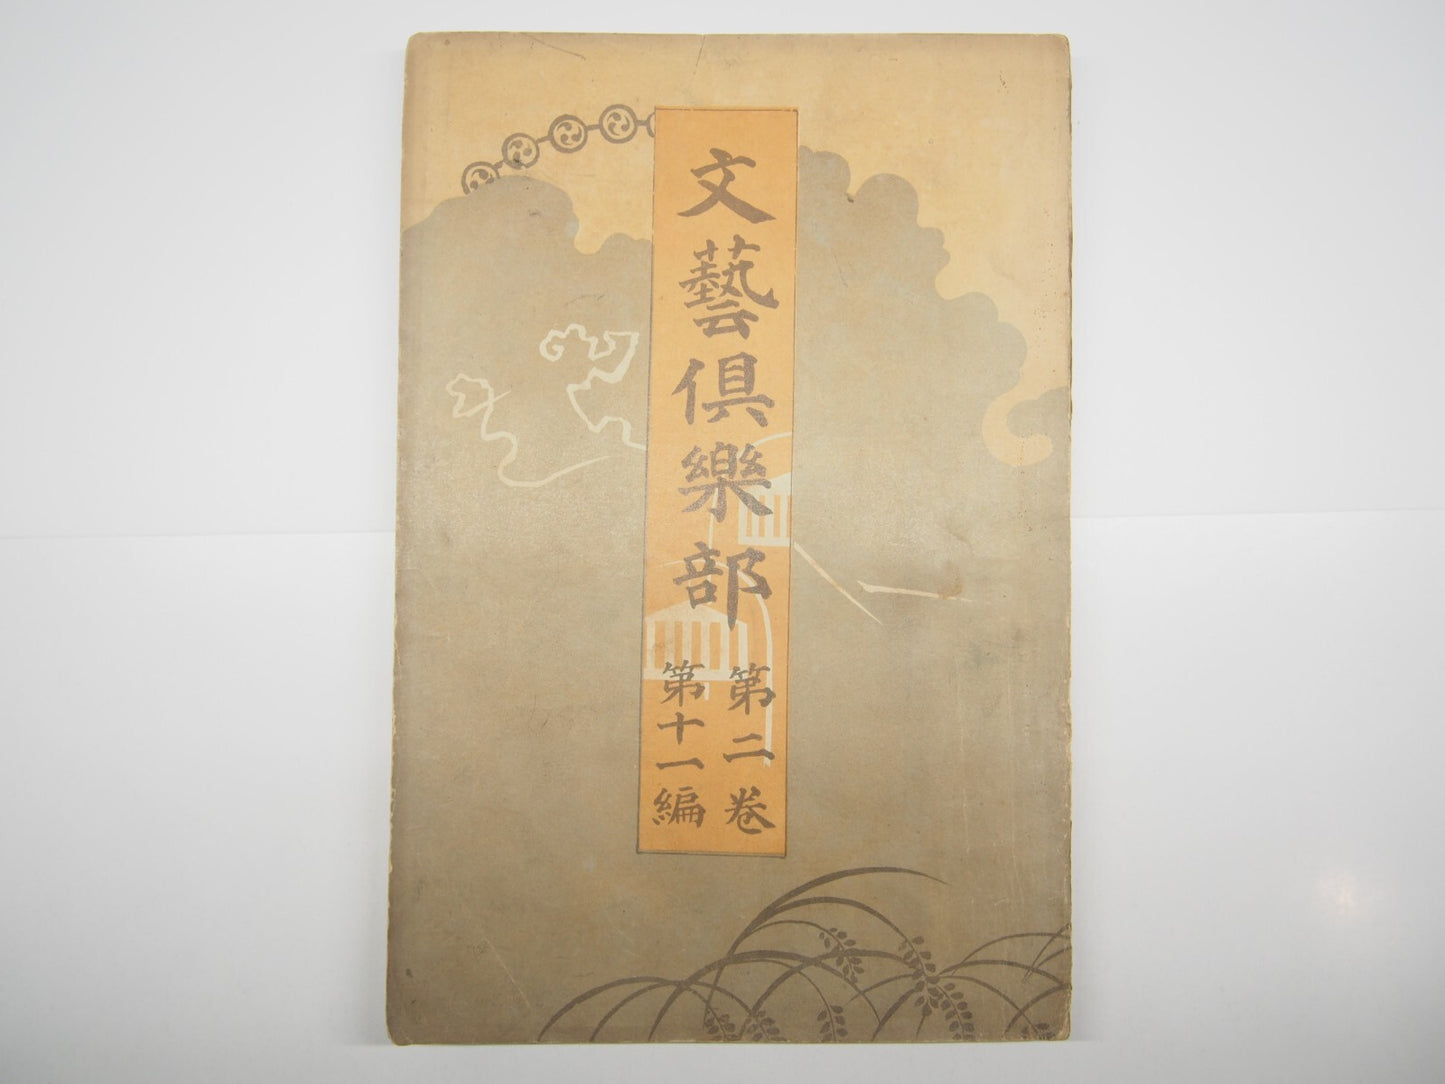 文藝倶樂部
第二卷
第十一編